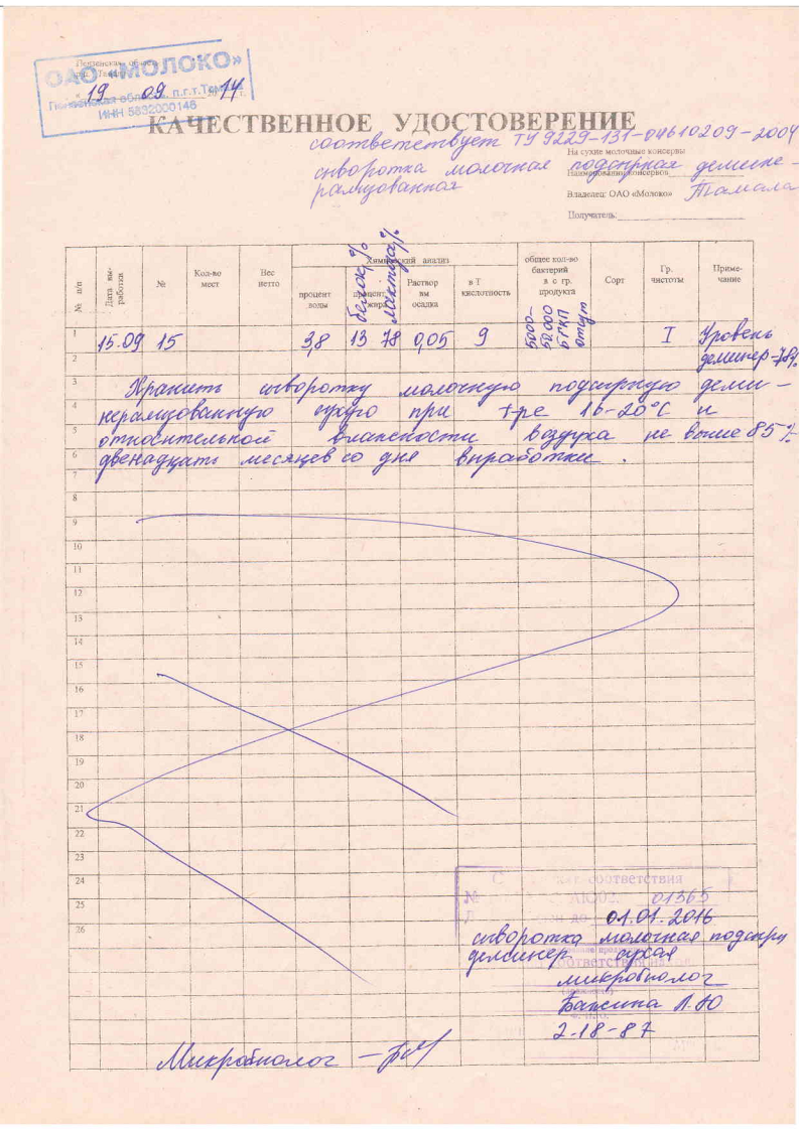 ОАО «МОЛОКО»
19 09 14 г.
Пензенская область, п.г.т. Тамала
ИНН 5832000146
КАЧЕСТВЕННОЕ УДОСТОВЕРЕНИЕ
соответствует ТУ 9229-131-04610209-2004
На сухие молочные консервы
сыворотка молочная подсырная деминe-
Наименование консервов
рализованная
Владелец: ОАО «Молоко» Тамала
Получатель:
№ п/п
Дата вы-работки
№
Кол-во мест
Вес нетто
Химический анализ
процент воды
процент жира
белок,%
лактоза,%
Раствор вм осадка
в Т кислотность
общее кол-во бактерий в с гр. продукта
Сорт
Гр. чистоты
Приме-чание
1 15.09 15 3,8 13 78 0,05 9 5000-50.000 БГКП отсут I Уровень
2 деминер-78%
3 Хранить сыворотку молочную подсырную деми-
4 нерализованную сухую при t-ре 16-20°С и
5 относительной влажности воздуха не выше 85%
6 двенадцать месяцев со дня выработки.
7
8
9
10
11
12
13
14
15
16
17
18
19
20
21
22
23
24
25
26
соответствия
№ 01365
01.01.2016
сыворотка молочная подсыр
деминер сухая
микробиолог
Л.Ю
2-18-87
Микробиолог